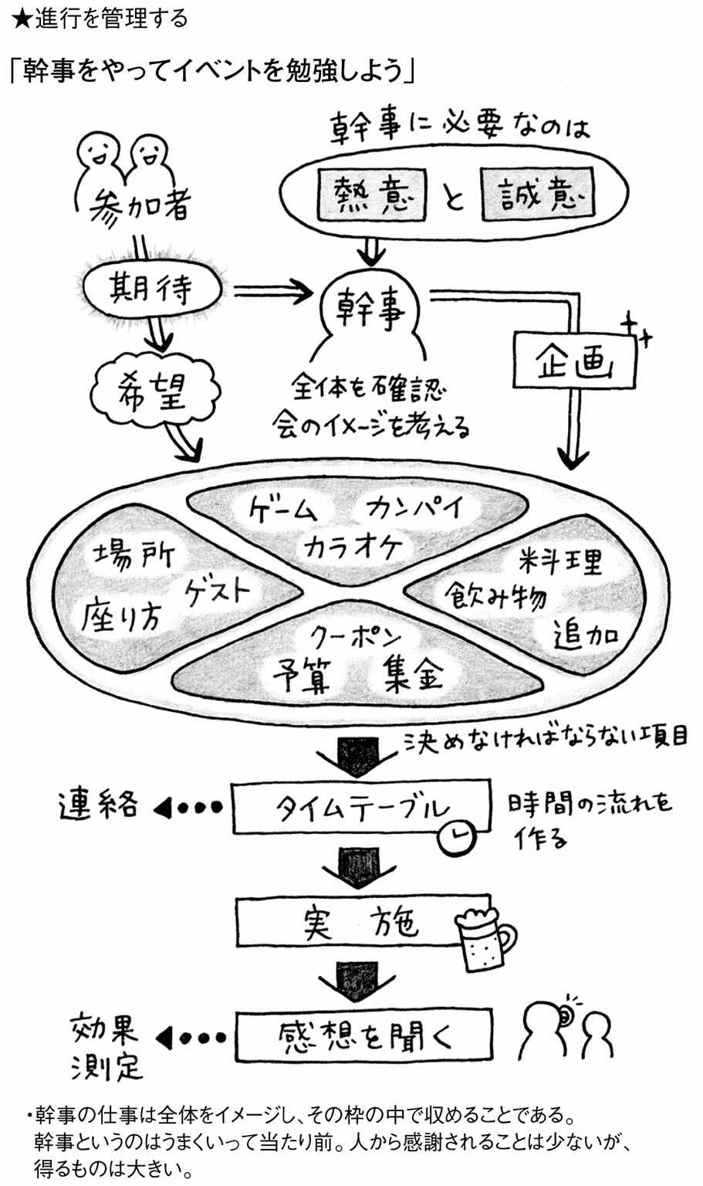 ★進行を管理する
「幹事をやってイベントを勉強しよう」
幹事に必要なのは
熱意と誠意
参加者
期待
幹事
企画
希望
全体を確認
会のイメージを考える
ゲーム
カンパイ
カラオケ
場所
ゲスト
座り方
料理
飲み物
追加
クーポン
予算
集金
決めなければならない項目
連絡
タイムテーブル
時間の流れを
作る
実施
効果
測定
感想を聞く
・幹事の仕事は全体をイメージし、その枠の中で収めることである。
幹事というのはうまくいって当たり前。人から感謝されることは少ないが、
得るものは大きい。